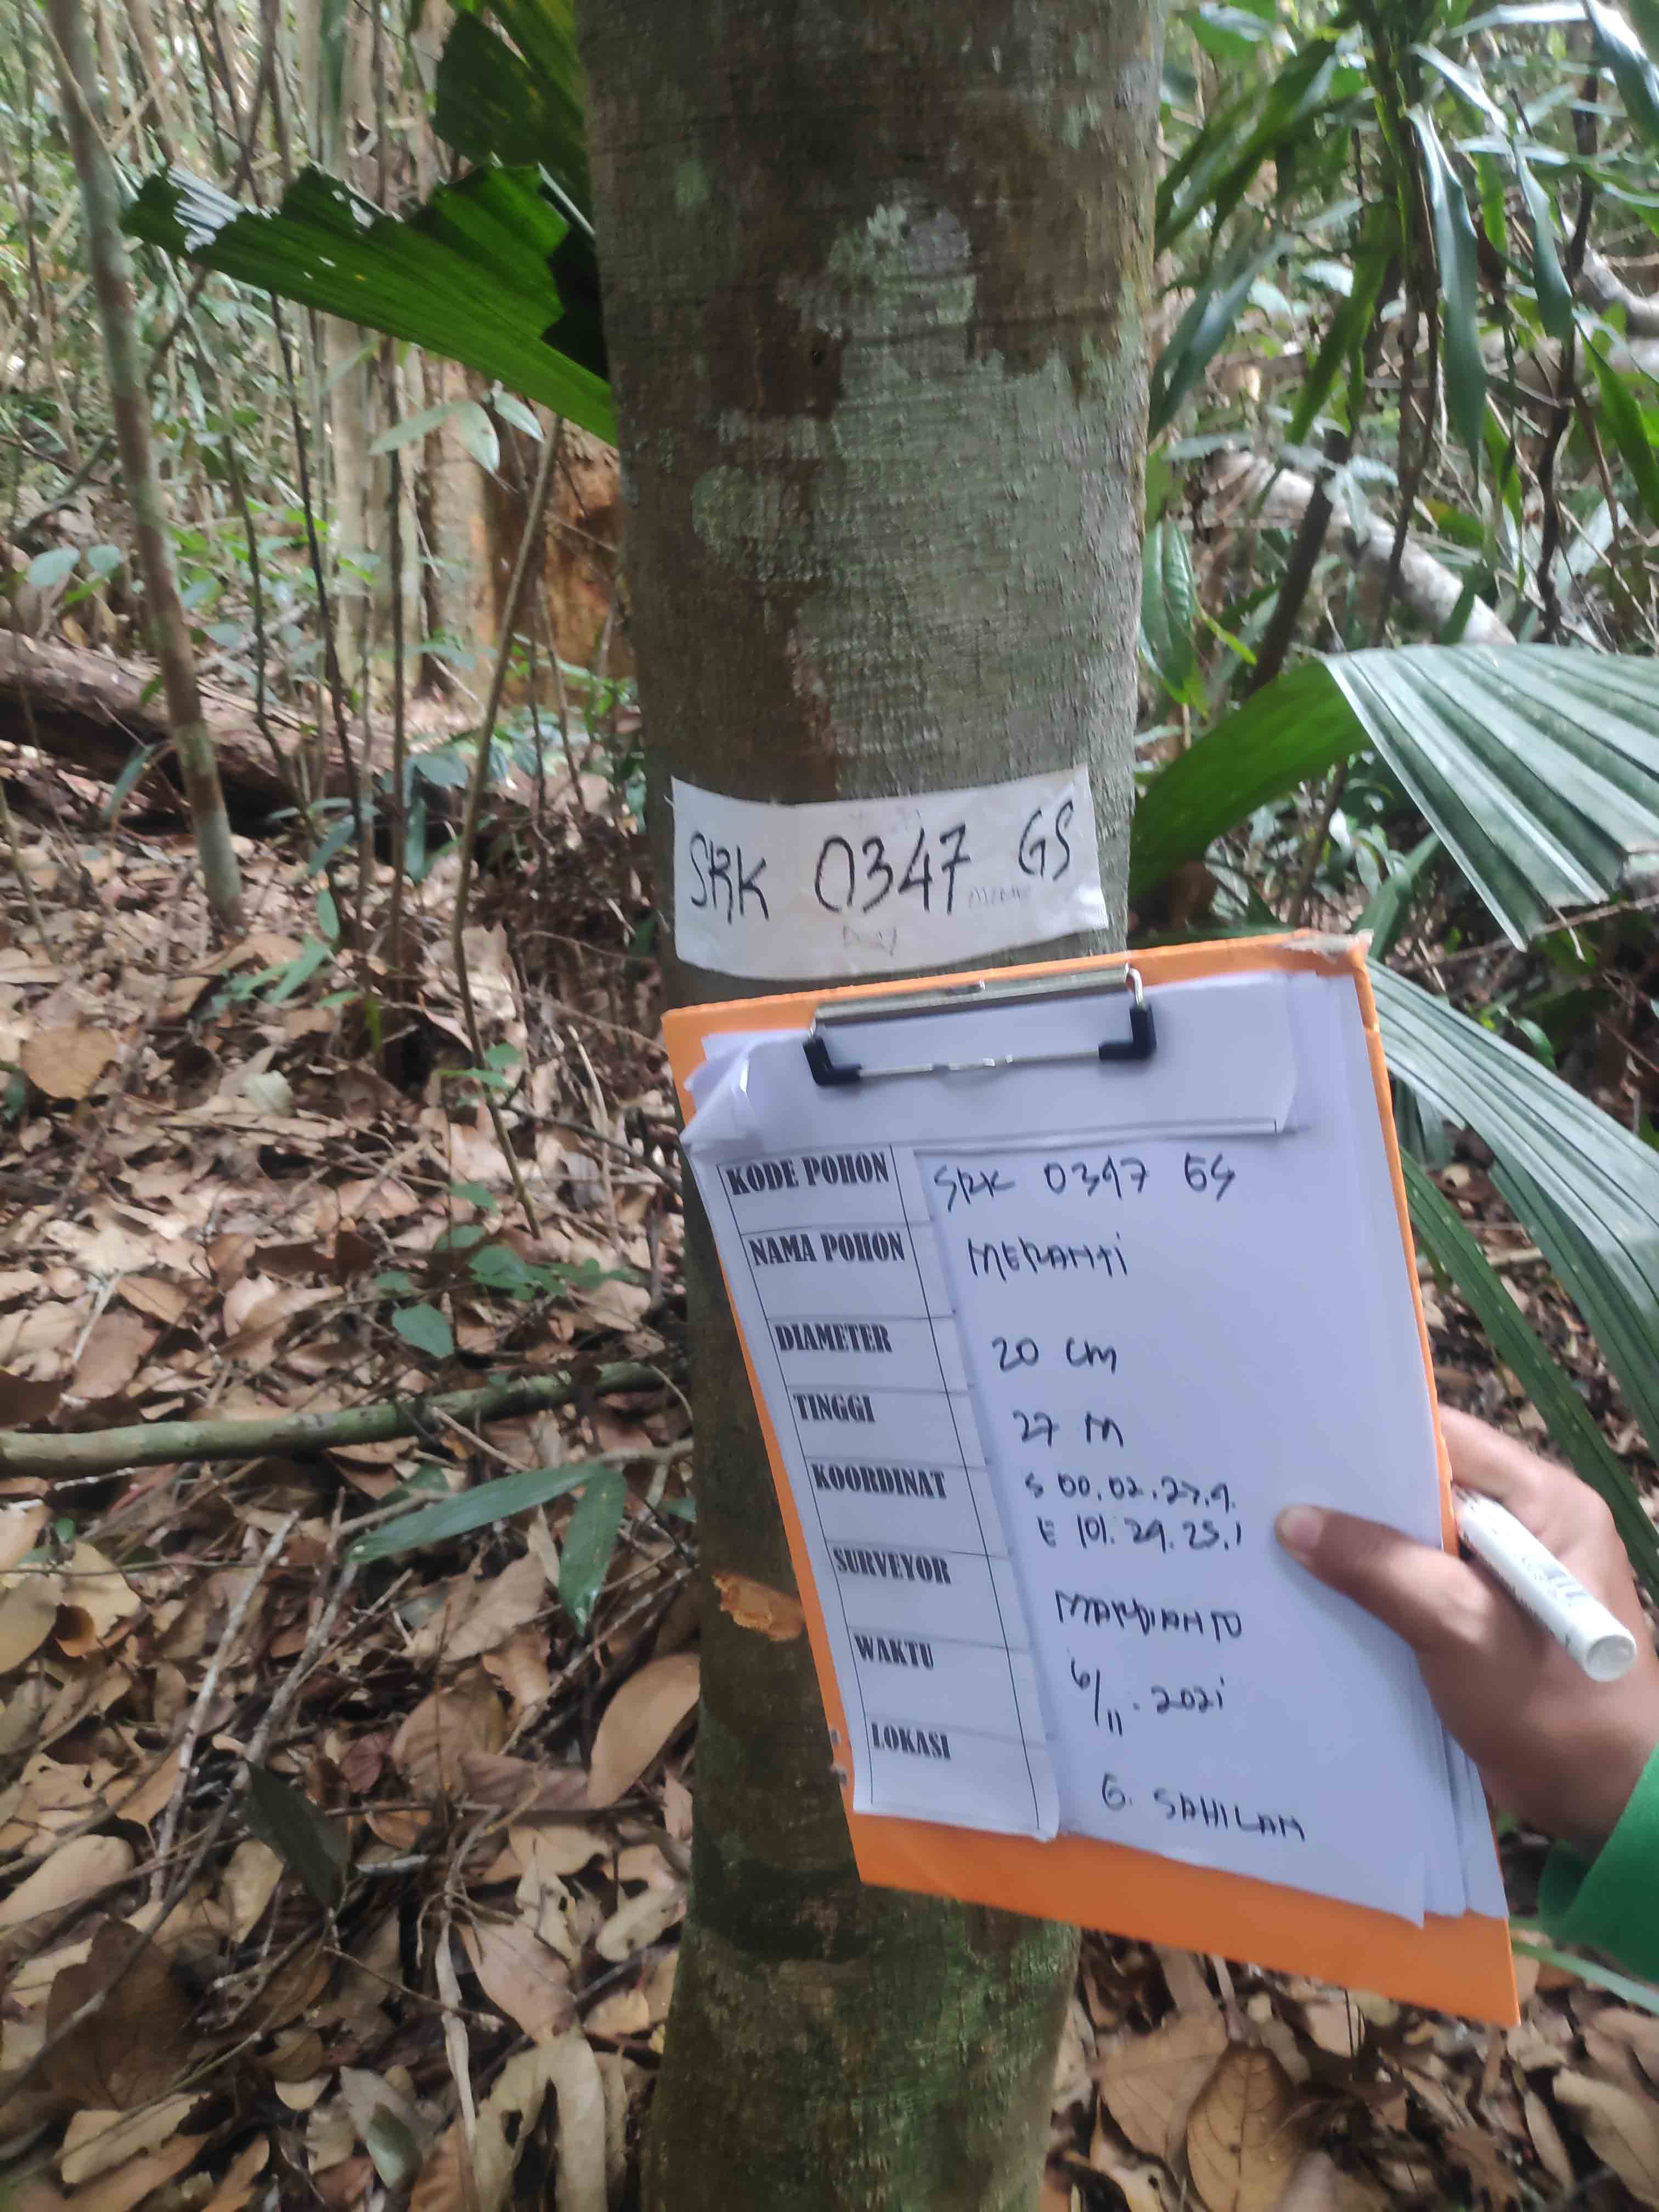 SRK 0347 GS
KODE POHON SRK 0347 GS
NAMA POHON MERANTI
DIAMETER 20 cm
TINGGI 27 M
KOORDINAT S 00.02.27.9.
E 101.29.25.1
SURVEYOR MARDIANTO
WAKTU 6/11.2021
LOKASI G. SAHILAN